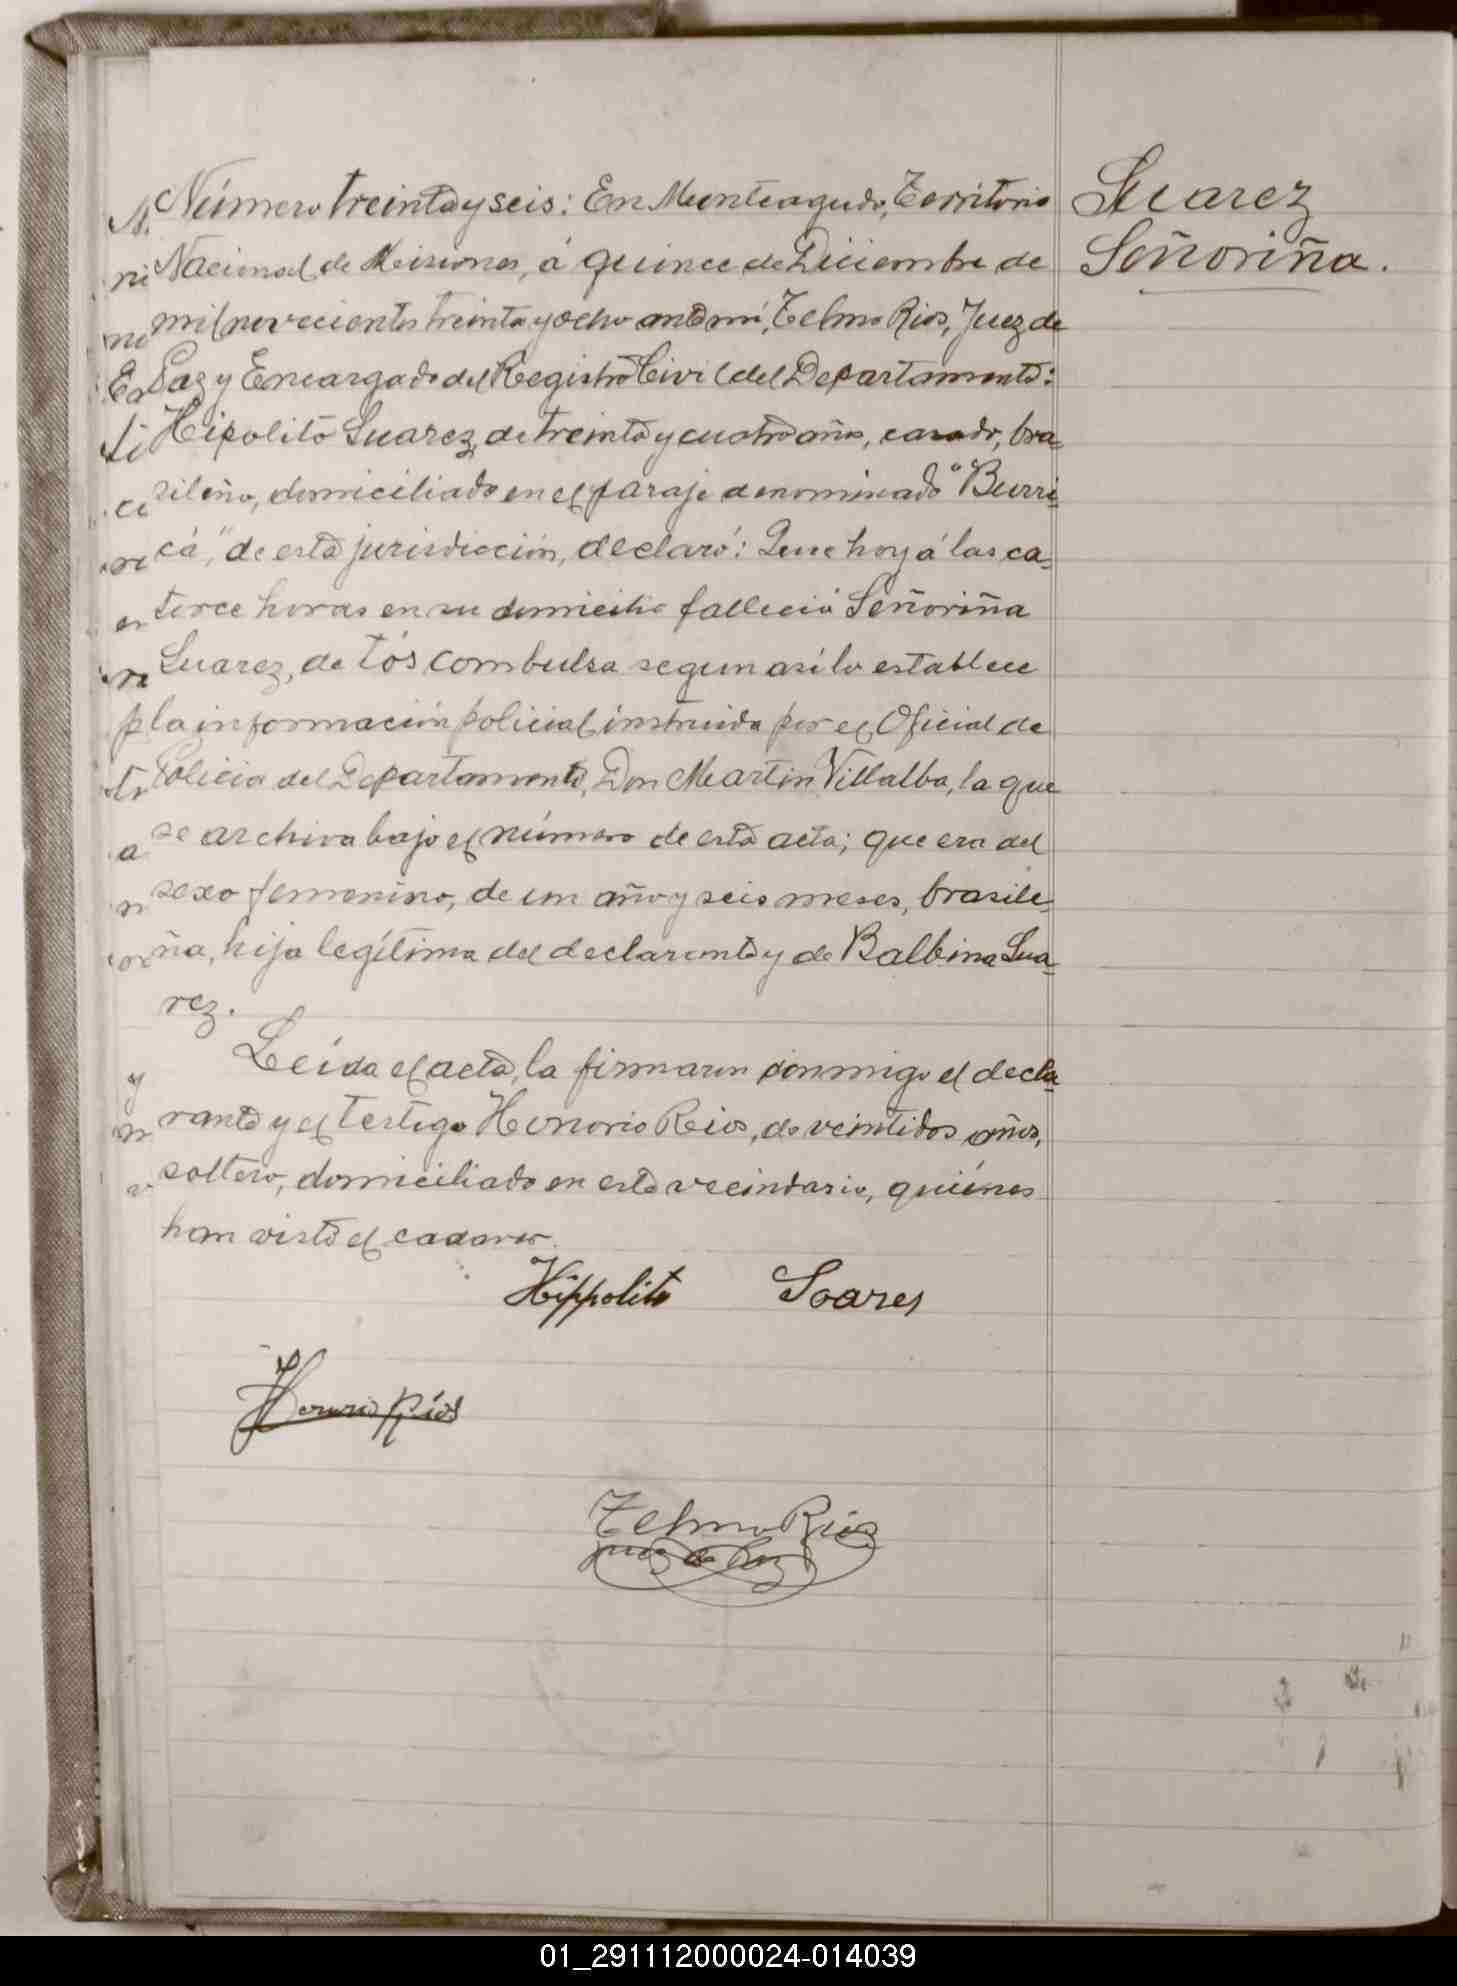 Suarez
Señoriña.
Número treinta y seis: En Monteagudo, Territorio
Nacional de Misiones, á quince de Diciembre de
mil novecientos treinta y ocho ante mí, Telmo Rios, Juez de
Paz y Encargado del Registro Civil del Departamento:
Hipolito Suarez, de treinta y cuatro años, casado, bra-
sileño, domiciliado en el paraje denominado "Burri-
cá," de esta jurisdicción, declaró: Que hoy á las ca-
torce horas en su domicilio falleció Señoriña
Suarez, de tós combulsa segun asi lo establece
la información policial instruida por el Oficial de
Policia del Departamento, Don Martin Villalba, la que
se archiva bajo el número de esta acta; que era del
sexo femenino, de un año y seis meses, brasile-
ña, hija legítima del declarante y de Balbina Sua-
rez.
Leída el acta, la firmaron conmigo el decla-
rante y el testigo Honorio Rios, de veintidos años,
soltero, domiciliado en este vecindario, quiénes
han visto el cadaver.
Hippolito Soares
Honorio Ríos
Telmo Rios
Juez de Paz
01_291112000024-014039